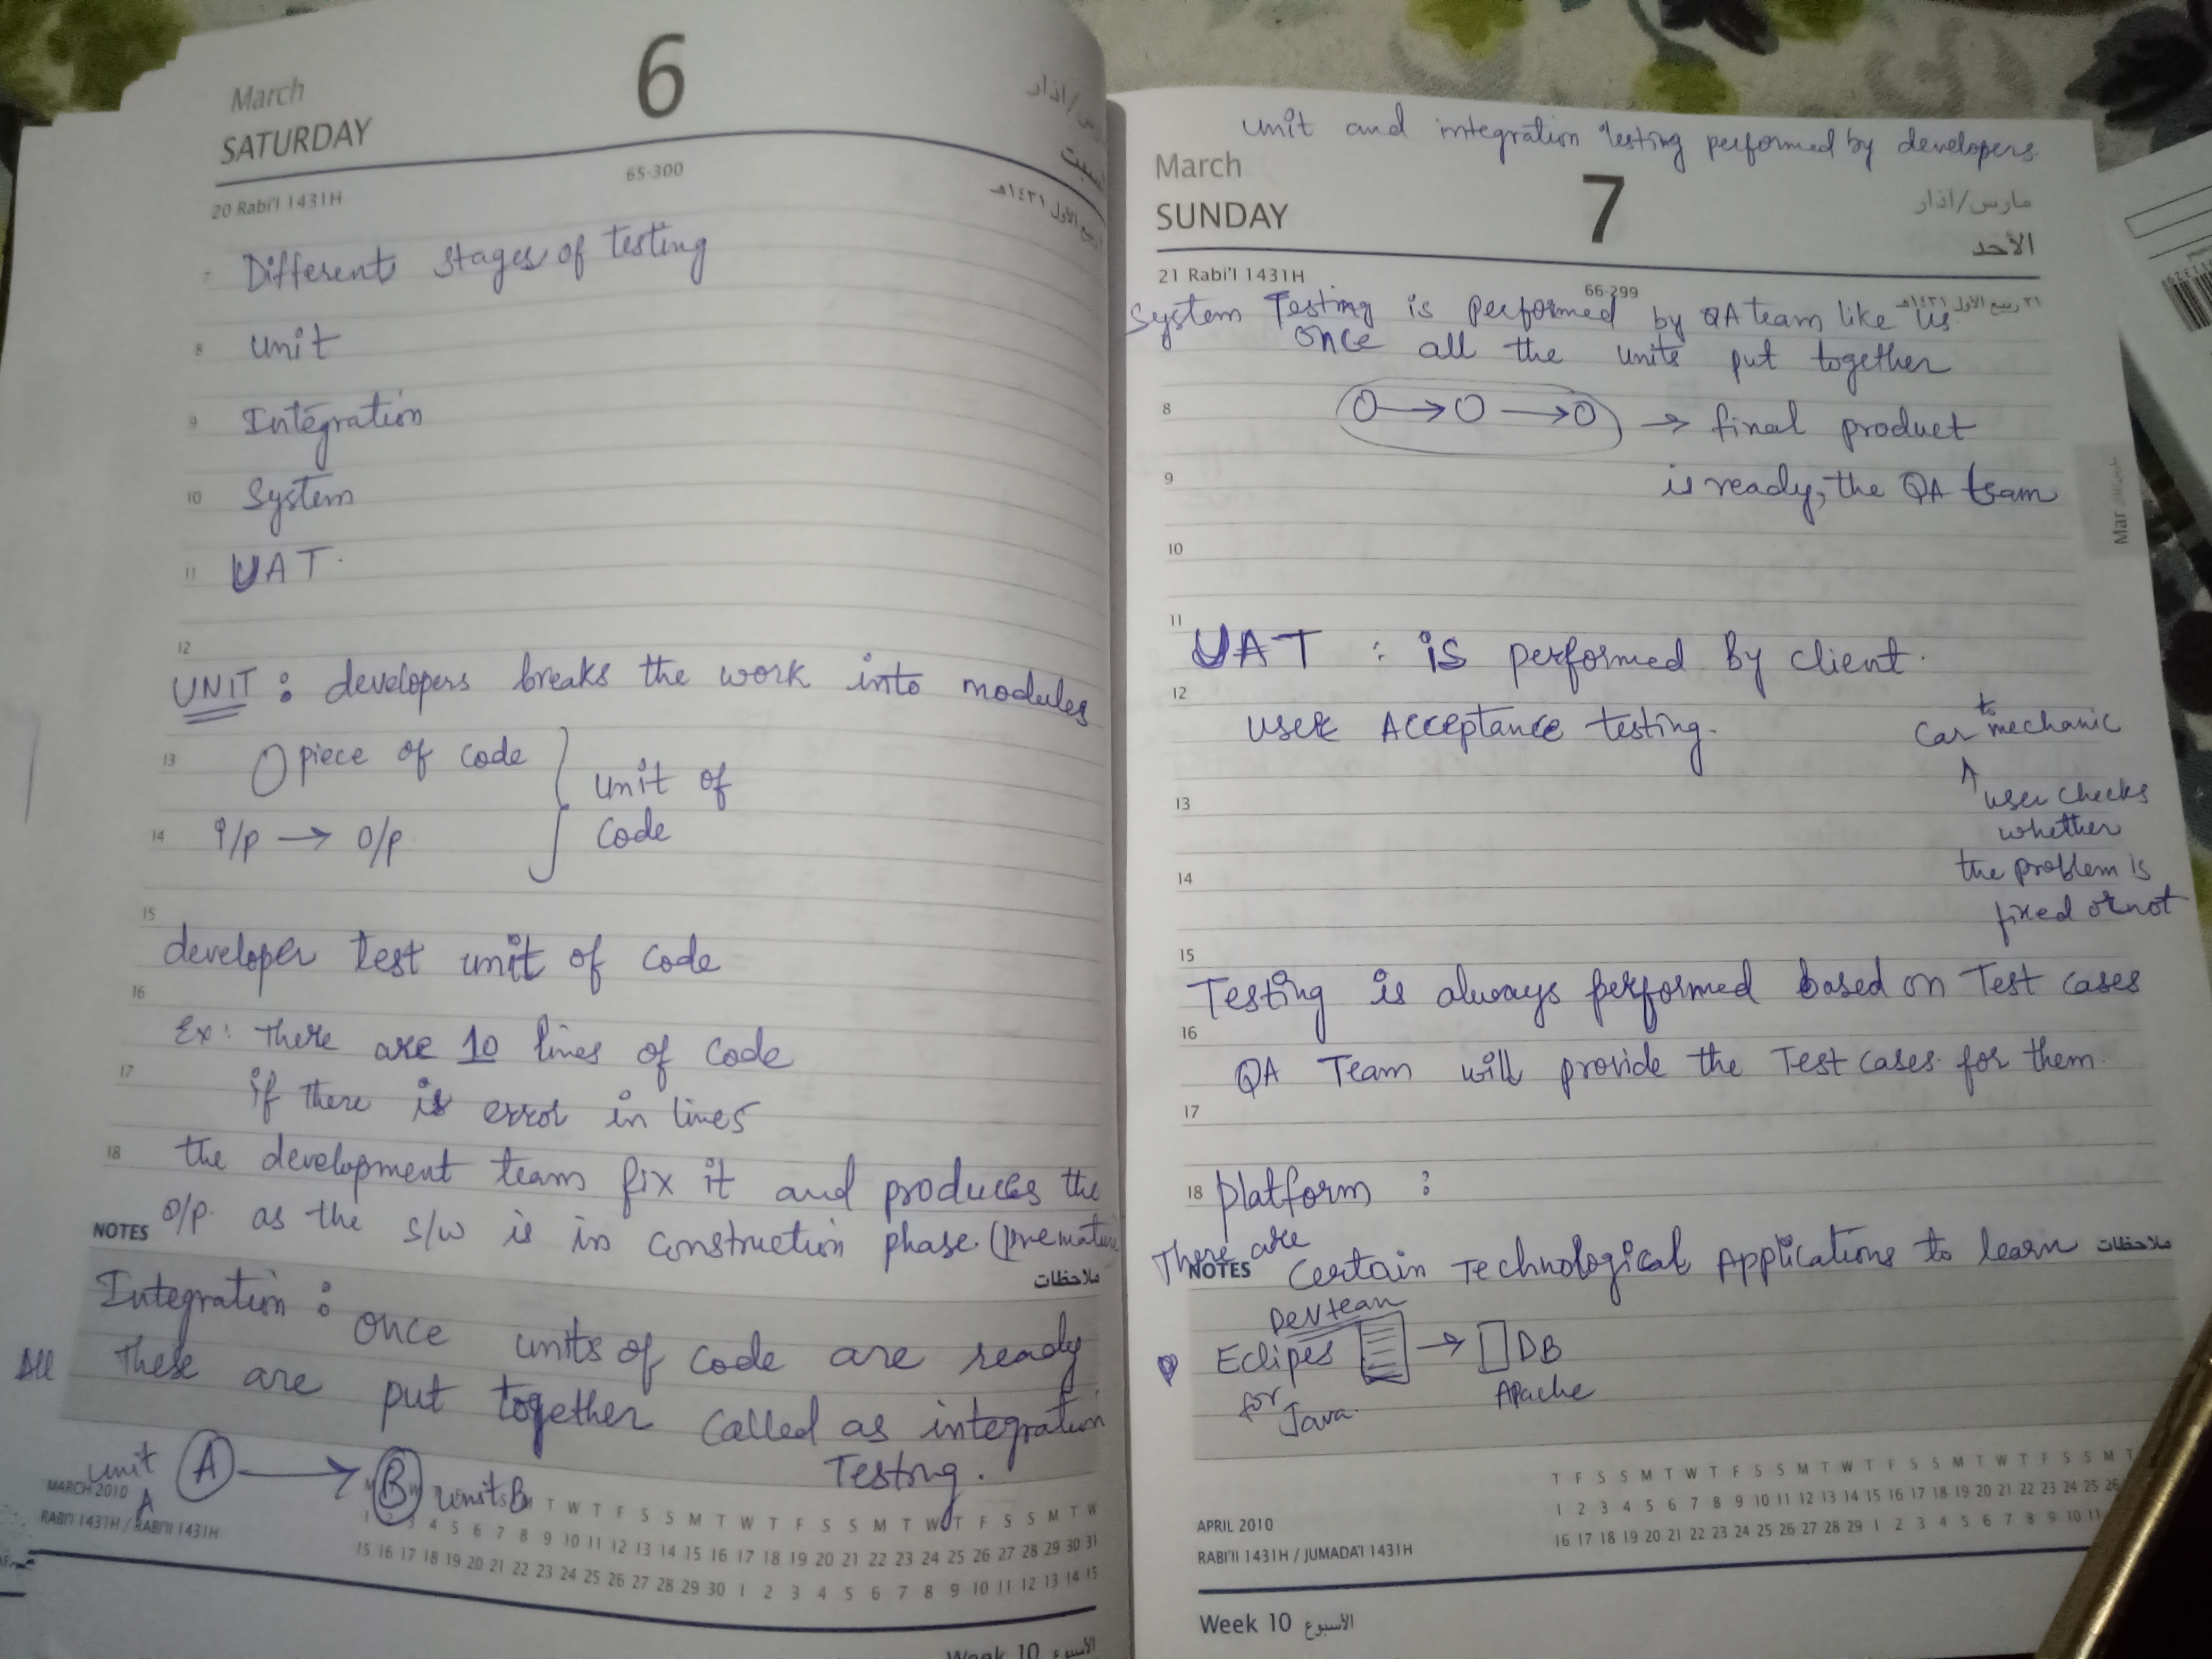 March
6
SATURDAY
65-300
20 Rabi'I 1431H
Different stages of testing
8 unit
9 Integration
10 System
11 UAT.
12
UNIT : developers breaks the work into modules
13 O piece of code
unit of
code
14 i/p → o/p
15
developer test unit of code
16
Ex: There are 10 lines of code
17
if there is error in lines
18 the development team fix it and produces the
NOTES o/p. as the s/w is in construction phase. (premature
ملاحظات
Integration : once units of code are ready
All these are put together called as integration
Testing.
unit A → B units B
A
MARCH 2010
RABI'I 1431H / RABI'II 1431H
T W T F S S M T W T F S S M T W T F S S M T W
4 5 6 7 8 9 10 11 12 13 14 15 16 17 18 19 20 21 22 23 24 25 26 27 28 29 30 31
15 16 17 18 19 20 21 22 23 24 25 26 27 28 29 30 1 2 3 4 5 6 7 8 9 10 11 12 13 14 15
Week 10 الأسبوع
unit and integration testing performed by developers.
March
7
مارس/آذار
SUNDAY
الأحد
21 Rabi'I 1431H
66-299
٢١ ربيع الأول ١٤٣١هـ
System Testing is performed by QA team like us
once all the units put together
8 O → O → O → final product
9 is ready, the QA team
Mar
10
11
UAT : is performed By client.
12
user Acceptance testing.
Car to mechanic
↑ user checks
13
whether
14 the problem is
fixed or not
15
Testing is always performed based on Test cases
16
QA Team will provide the Test cases for them.
17
18 platform :
There are
NOTES Certain Technological Applications to learn ملاحظات
Dev team
Eclipes → DB
for Apache
Java.
T F S S M T W T F S S M T W T F S S M T W T F S S M T
1 2 3 4 5 6 7 8 9 10 11 12 13 14 15 16 17 18 19 20 21 22 23 24 25 26
APRIL 2010
16 17 18 19 20 21 22 23 24 25 26 27 28 29 1 2 3 4 5 6 7 8 9 10 11
RABI'II 1431H / JUMADA'I 1431H
Week 10 الأسبوع